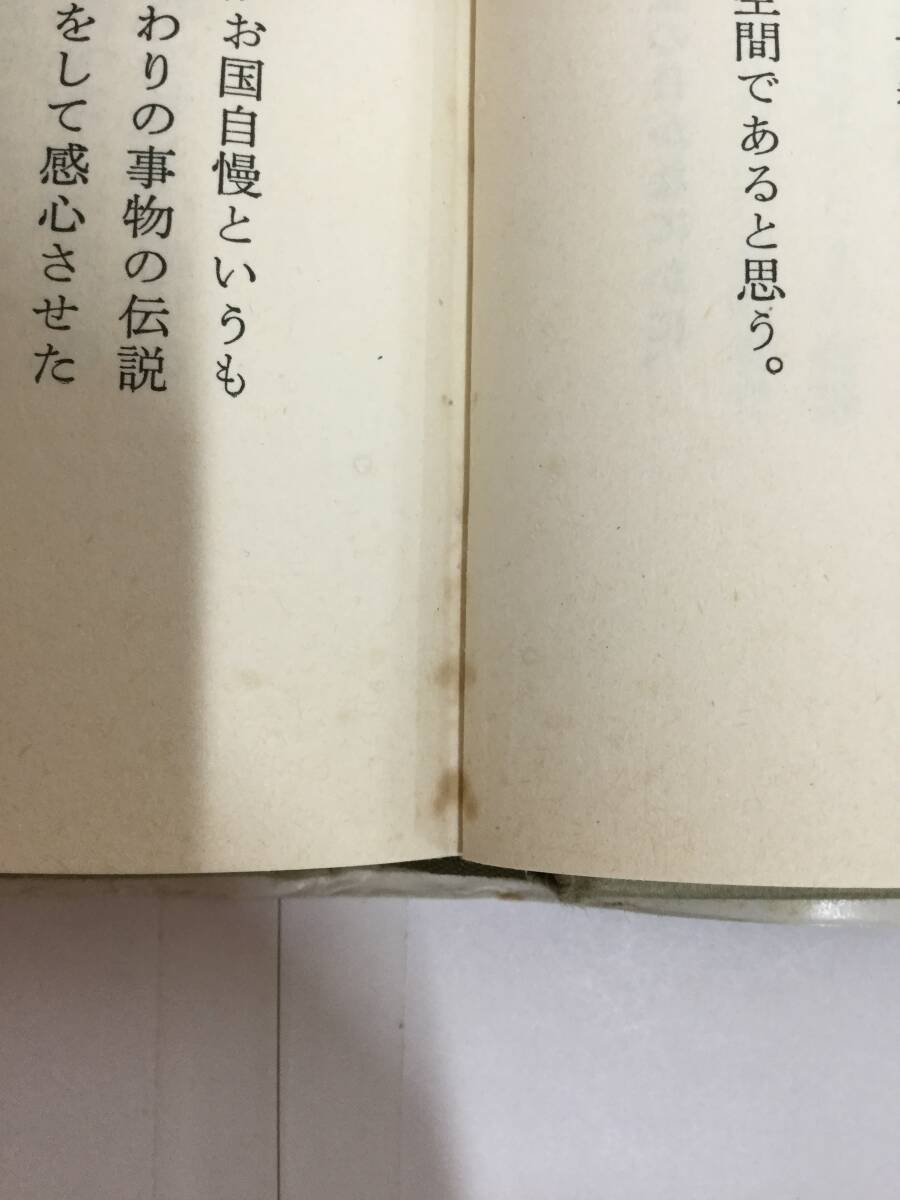 空間であると思う。
お国自慢というも
わりの事物の伝説
をして感心させた